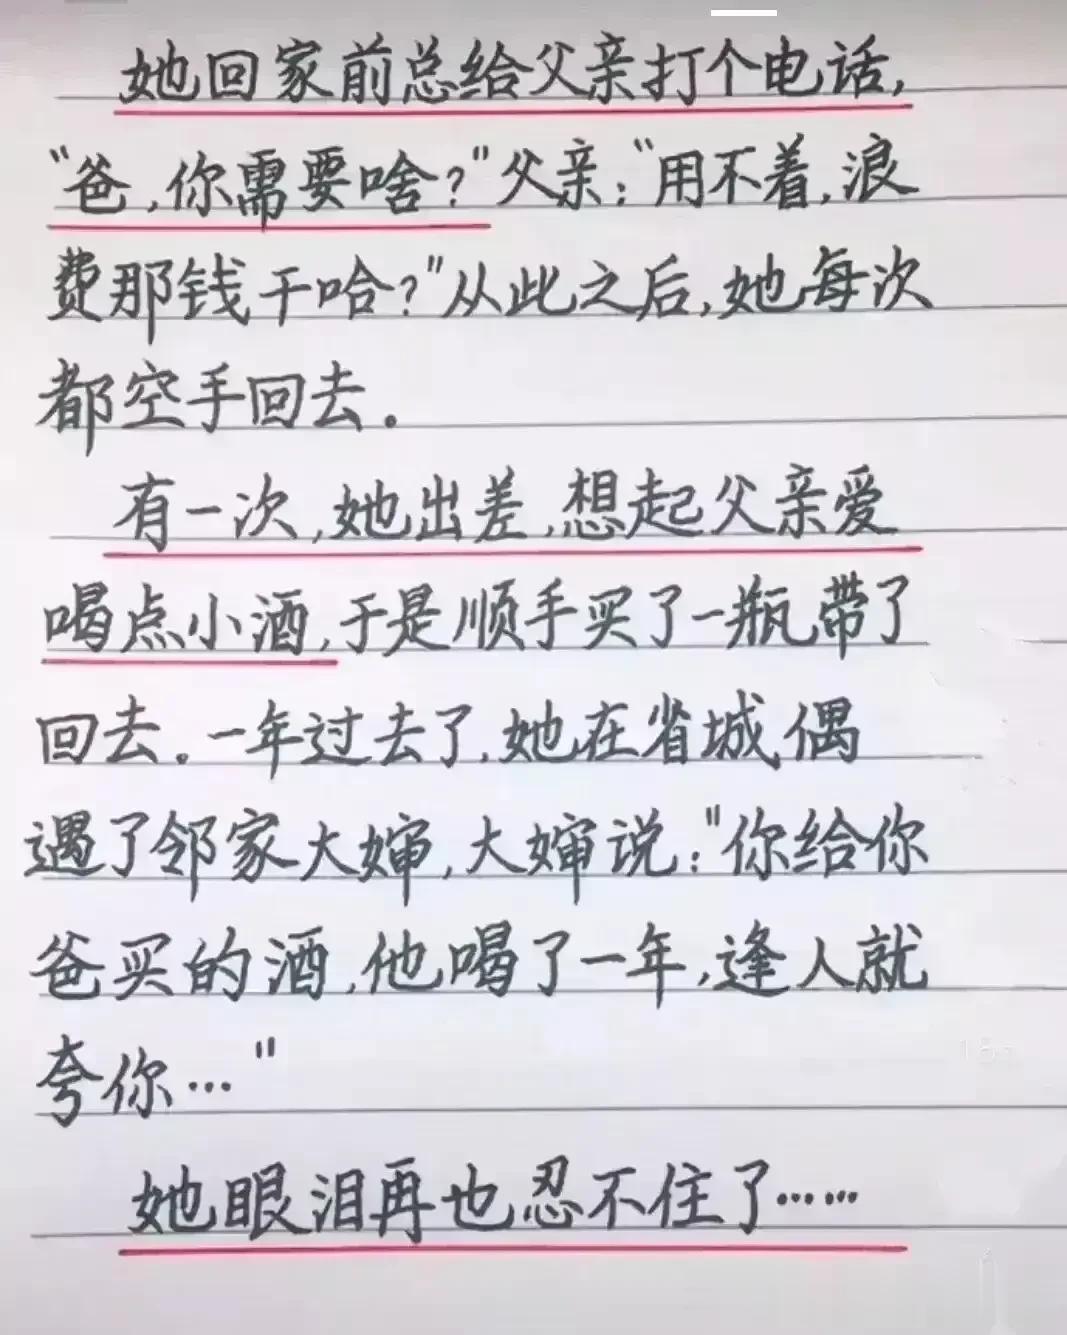 她回家前总给父亲打个电话,
"爸,你需要啥?"父亲:"用不着,浪
费那钱干哈?"从此之后,她每次
都空手回去。
有一次,她出差,想起父亲爱
喝点小酒,于是顺手买了一瓶带了
回去。一年过去了,她在省城偶
遇了邻家大婶,大婶说:"你给你
爸买的酒,他喝了一年,逢人就
夸你…"
她眼泪再也忍不住了……